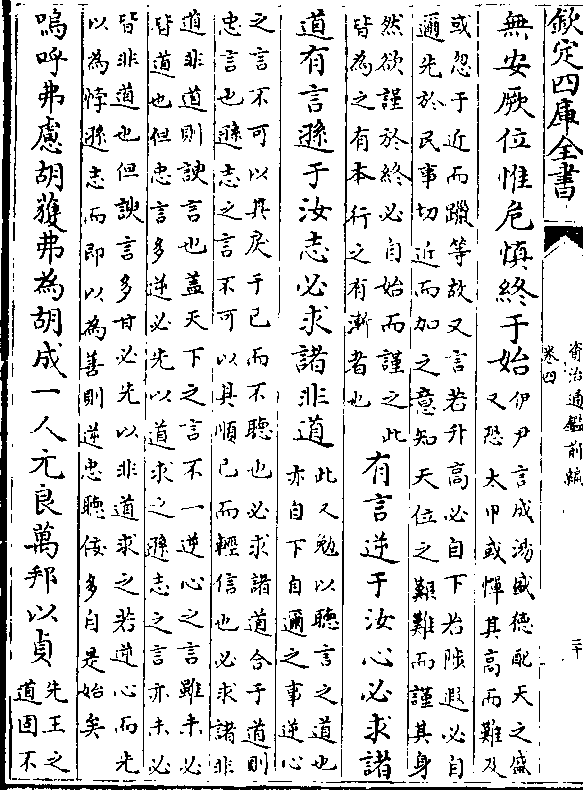 欽定四庫全書
資治通鑑前編
卷四
無安厥位惟危慎終于始
伊尹言成湯盛德配天之盛
又恐太甲或憚其高而難及
或忽于近而躐等故又言若升高必自下若陟遐必自
邇先於民事切近而加之意知天位之艱難而謹其身
然欲謹於終必自始而謹之此
皆為之有本行之有漸者也
有言逆于汝心必求諸
道有言遜于汝志必求諸非道
此又勉以聽言之道也
亦自下自邇之事逆心
之言不可以其戾于己而不聽也必求諸道合于道則
忠言也遜志之言不可以其順己而輕信也必求諸非
道非道則諛言也蓋天下之言不一逆心之言雖未必
皆道也但忠言多逆必先以道求之遜志之言亦未必
皆非道也但諛言多甘必先以非道求之若逆心而先
以為悖遜志而即以為善則逆忠聽佞多自是始矣
嗚呼弗慮胡獲弗為胡成一人元良萬邦以貞
先王之
道固不